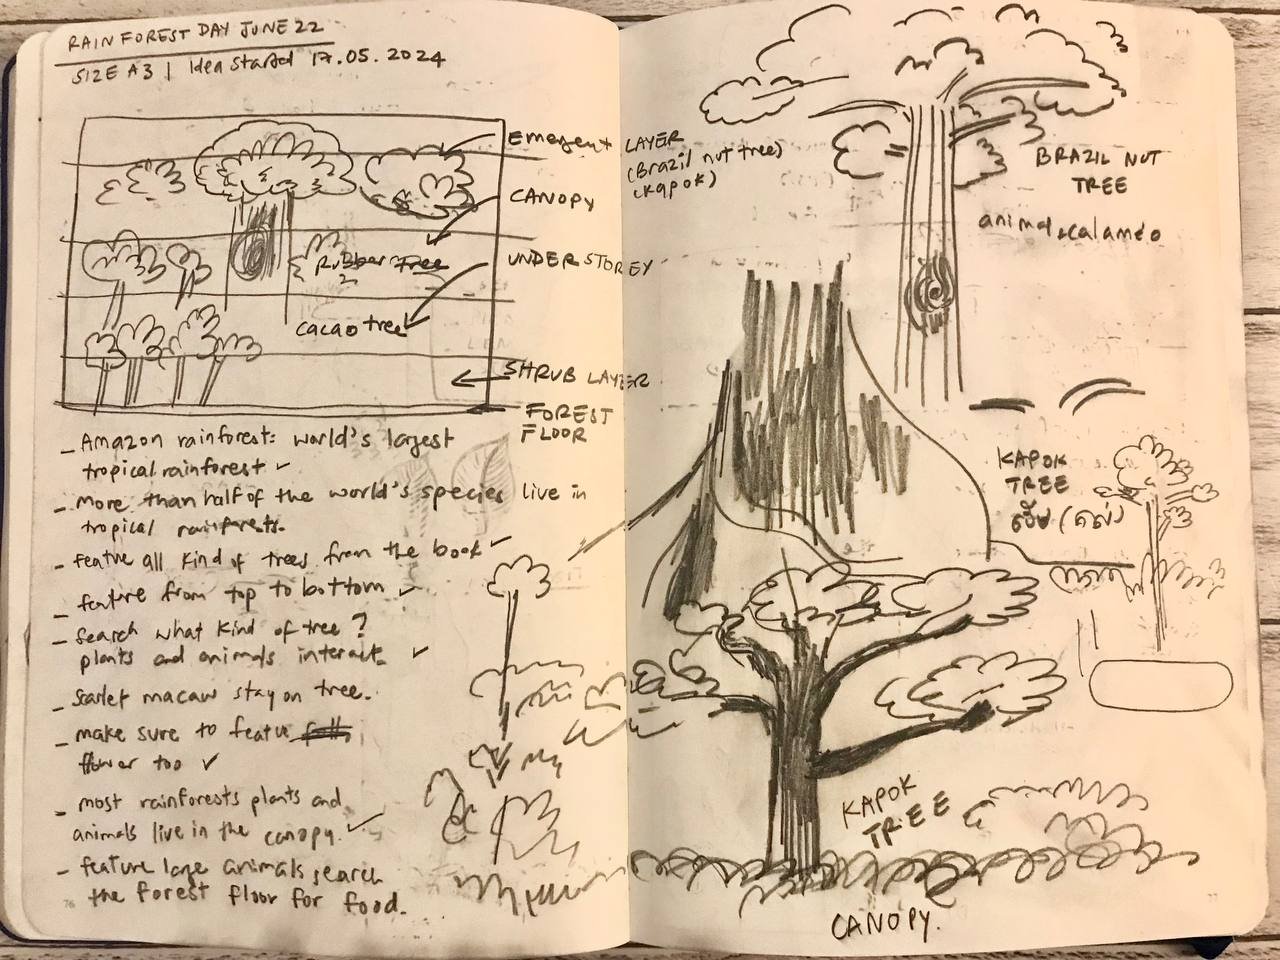 RAINFOREST DAY JUNE 22
SIZE A3 | Idea started 17.05.2024
Emergent LAYER
(Brazil nut tree)
(Kapok)
CANOPY
UNDERSTOREY
Rubber Tree
cacao tree
SHRUB LAYER
FOREST
FLOOR
- Amazon rainforest: world's largest
tropical rainforest ✓
- more than half of the world's species live in
tropical rainforests.
- feature all kind of trees from the book ✓
- feature from top to bottom ✓
- search what kind of tree?
plants and animals interact. ✓
- scarlet macaw stay on tree.
- make sure to featue
flower too ✓
- most rainforests plants and
animals live in the canopy. ✓
- feature large animals search
the forest floor for food.
76
BRAZIL NUT
TREE
KAPOK
TREE
KAPOK
TREE
CANOPY.
77